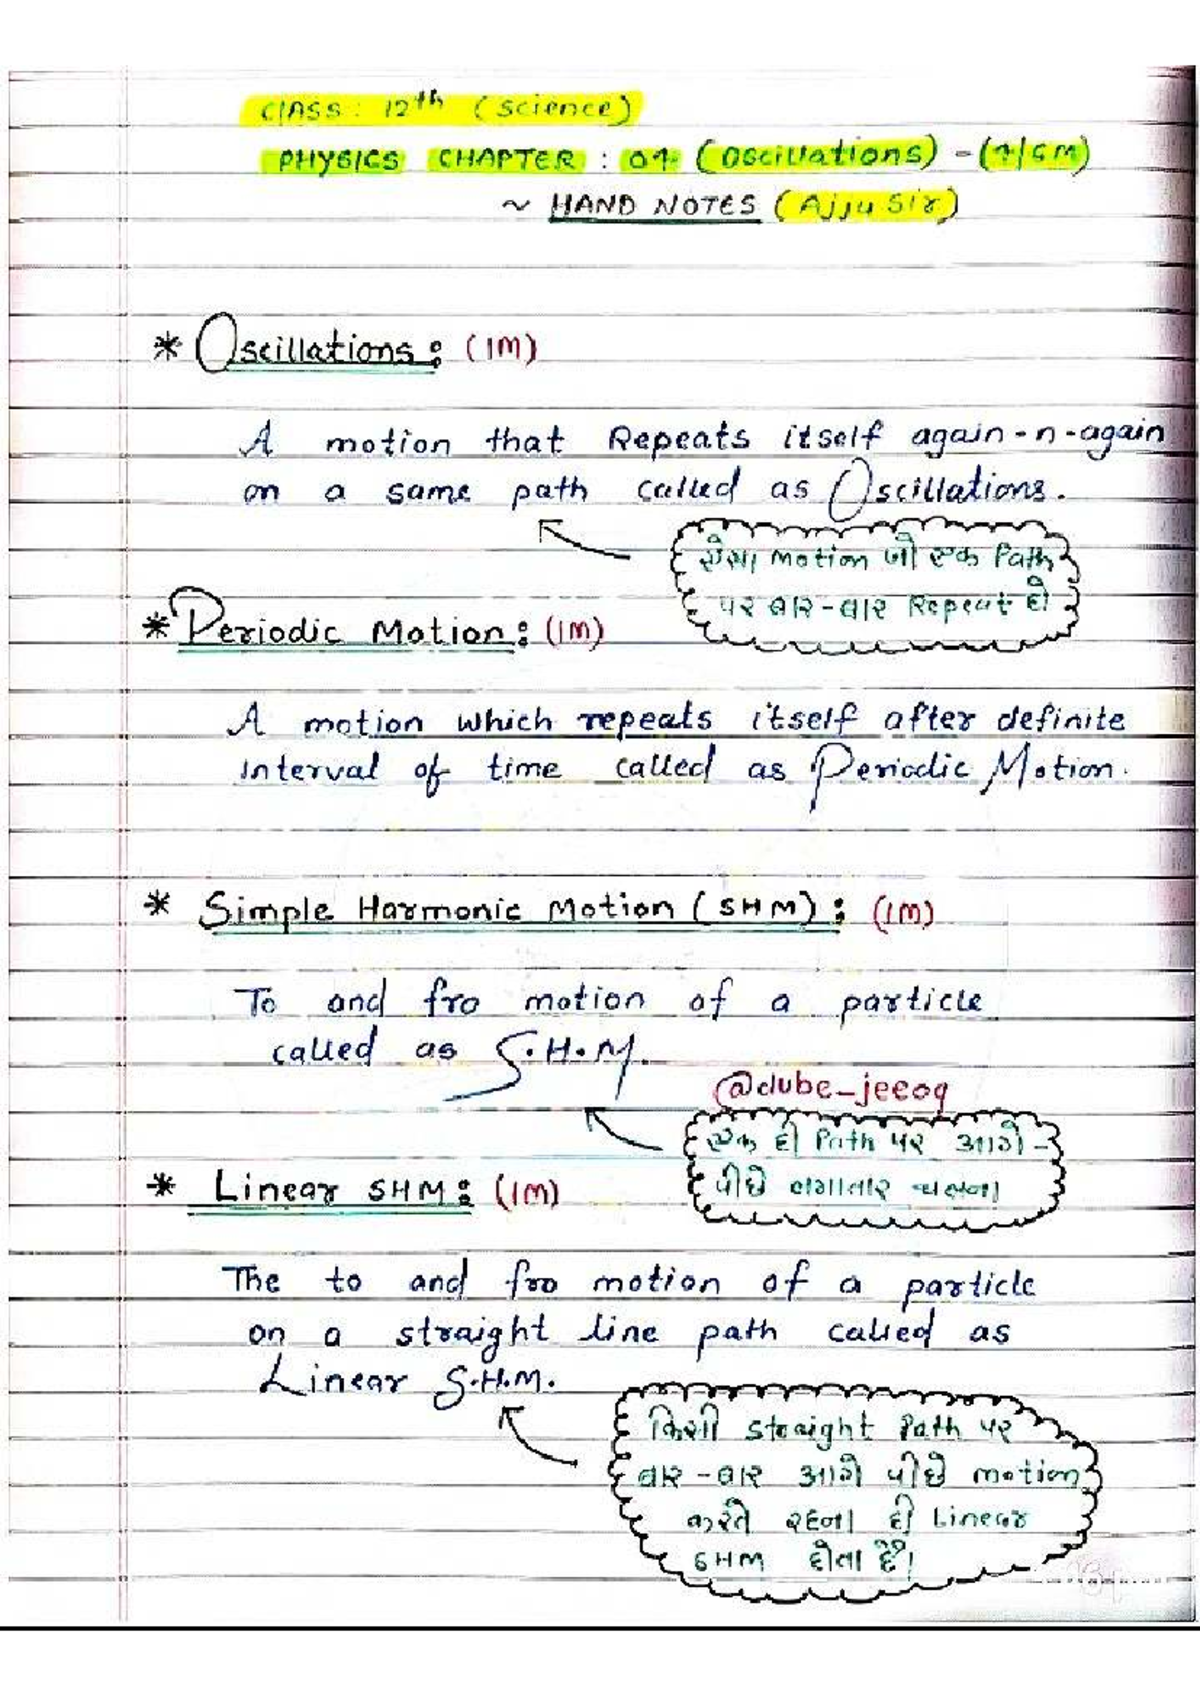 CLASS : 12th (Science)
PHYSICS CHAPTER : 04 (Oscillations) - (4/6M)
~ HAND NOTES (Ajju Sir)
* Oscillations : (1M)
A motion that Repeats itself again-n-again
on a same path called as Oscillations.
ऐसा motion जो एक Path
पर बार-बार Repeat हो
* Periodic Motion : (1M)
A motion which repeats itself after definite
interval of time called as Periodic Motion.
* Simple Harmonic Motion (SHM) : (1M)
To and fro motion of a particle
called as S.H.M.
@dube_jeeoq
एक ही Path पर आगे-
पीछे लगातार चलना
* Linear SHM : (1M)
The to and fro motion of a particle
on a straight line path called as
Linear S.H.M.
किसी straight Path पर
बार-बार आगे पीछे motion
करते रहना ही Linear
SHM होता है।